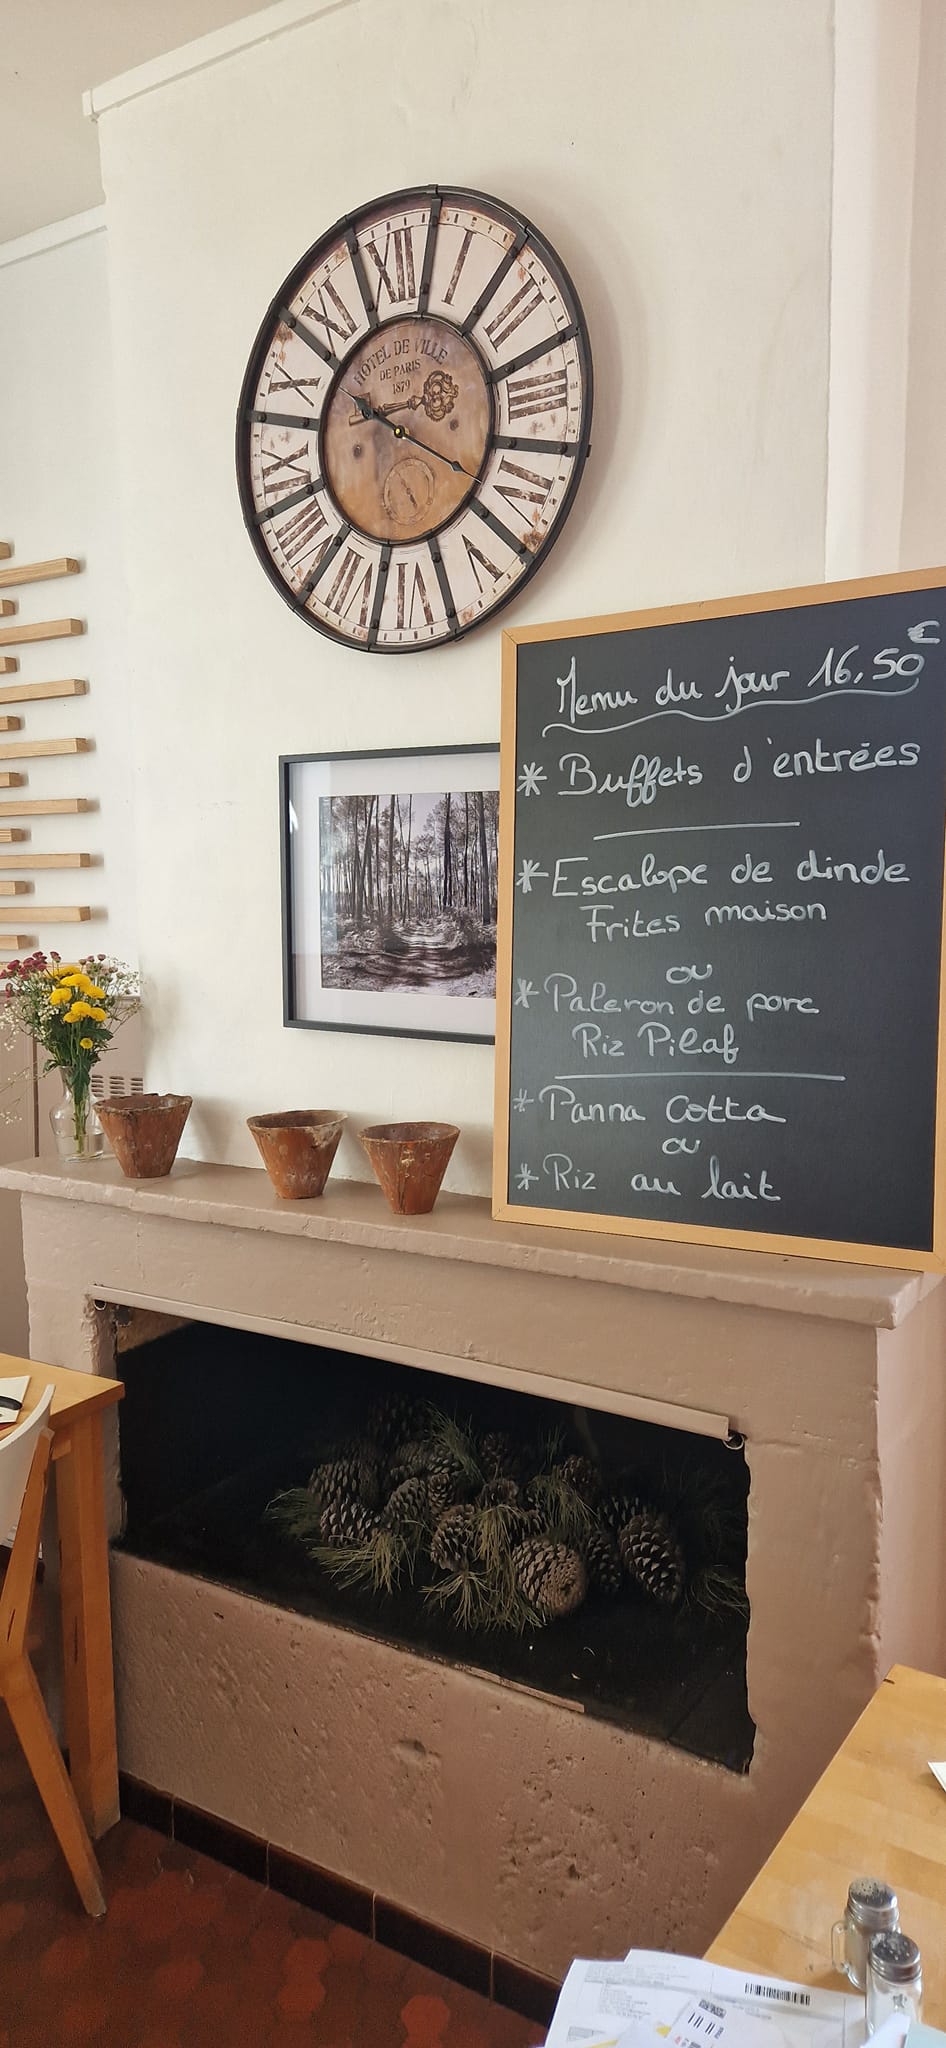 XII
I
II
III
IIII
V
VI
VII
VIII
IX
X
XI
HÔTEL DE VILLE
DE PARIS
1879
Menu du jour 16,50€
* Buffets d'entrées
* Escalope de dinde
Frites maison
ou
* Paleron de porc
Riz Pilaf
* Panna Cotta
ou
* Riz au lait